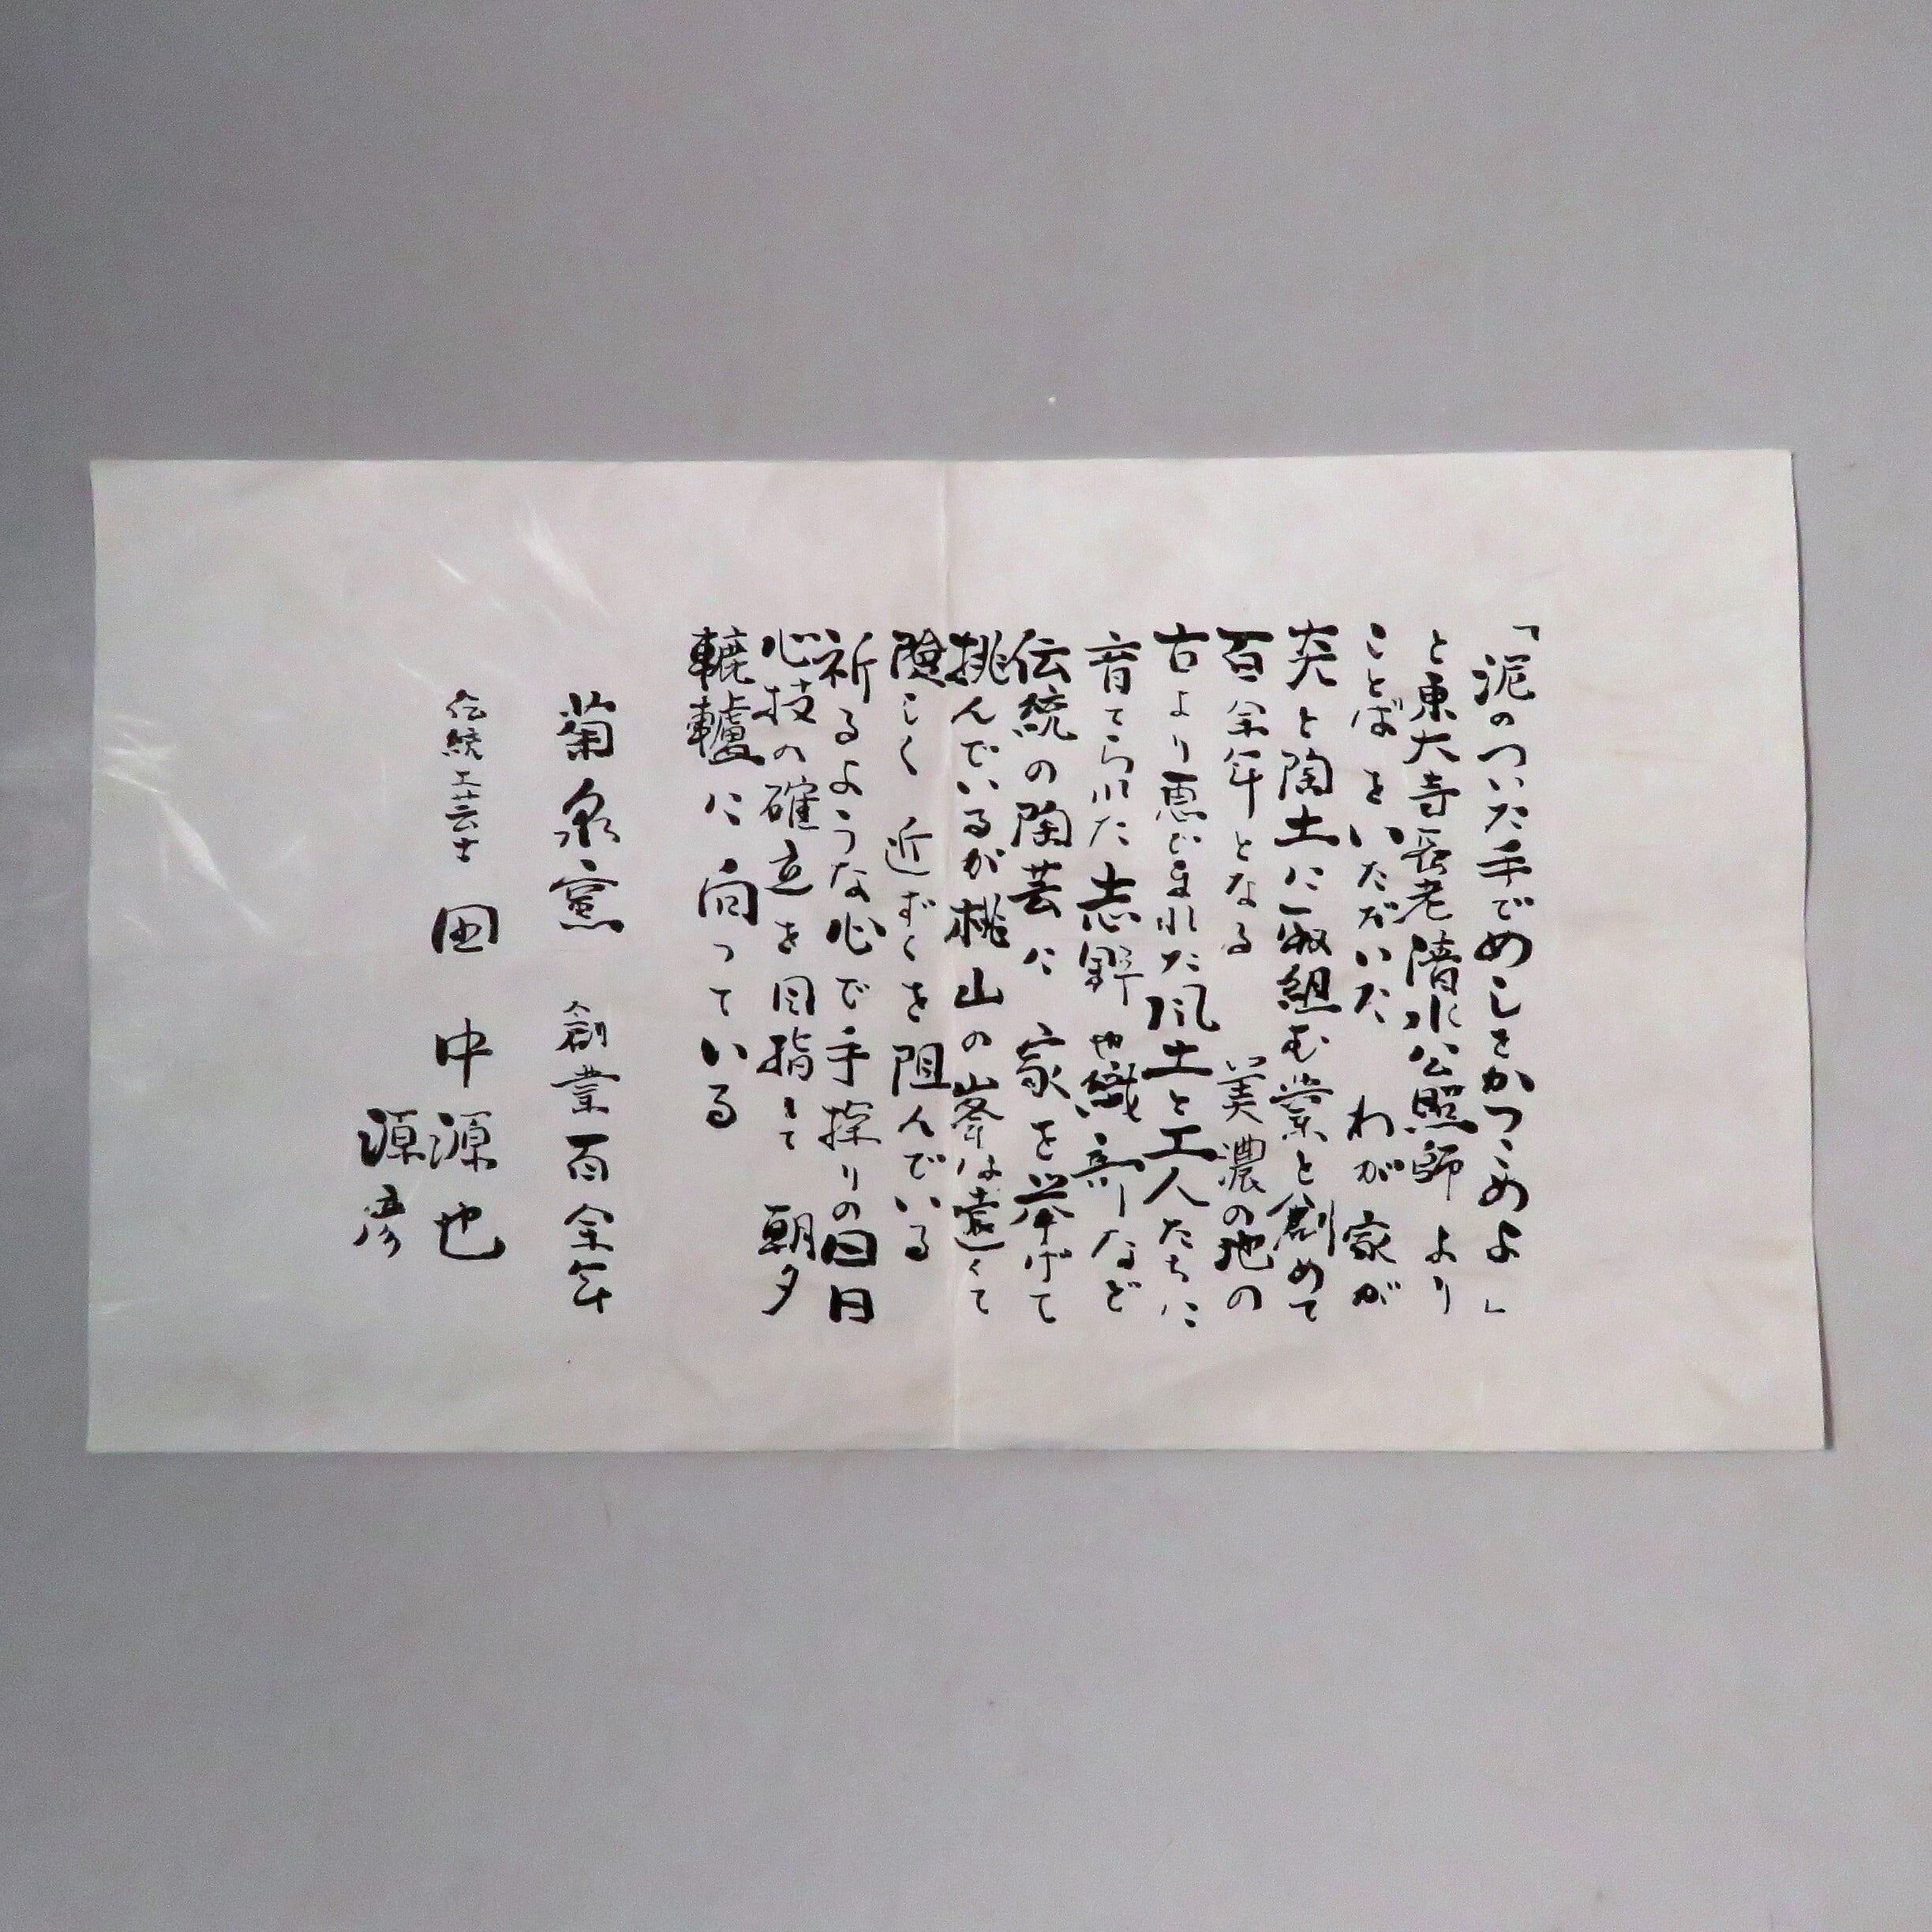 「泥のついた手でめしをかつこめよ」
と東大寺長老清水公照師 より
ことばをいただいた わが家が
炎と陶土に取組む業を創めて
百余年となる 美濃の地の
古より恵まれた風土と工人たちに
育てられた志野 織部など
伝統の陶芸に 家を挙げて
挑んでいるが桃山の峯は遠くて
険しく 近ずくを阻んでいる
祈るような心で手探りの日日
心技の確立を目指して 朝夕
轆轤に向っている
菊泉窯 創業百余年
伝統工芸士 田中源也
源彦